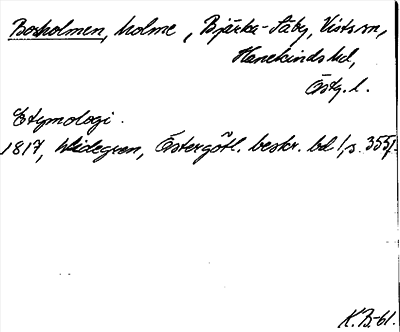 Boxholmen, holme, Bjärka-Säby, Vists sn,
Hanekinds hd,
Östg. l.
Etymologi.
1817, Widegren, Östergötl. beskr. bd 1, s. 355f.
K.B-61.